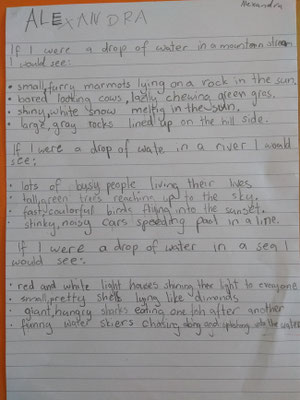 Alexandra
ALEXANDRA
If I were a drop of water in a mountain stream
I would see:
• small, furry marmots lying on a rock in the sun.
• bored looking cows, lazily chewing green gras.
• shiny, white snow melting in the sun.
• large, gray rocks lined up on the hill side.
If I were a drop of wate in a river I would
see:
• lots of busy people living their lives
• tall, green trees reaching up to the sky.
• fast, coulorful birds flying into the sunset.
• stinky, noisy cars speeding past in a line.
If I were a drop of water in a sea I
would see:
• red and white light houses shining their light to everyone
• small, pretty shells lying like dimends
• giant, hungry sharks eating one fish after another
• funny water skiers chasing along and splashing into the water